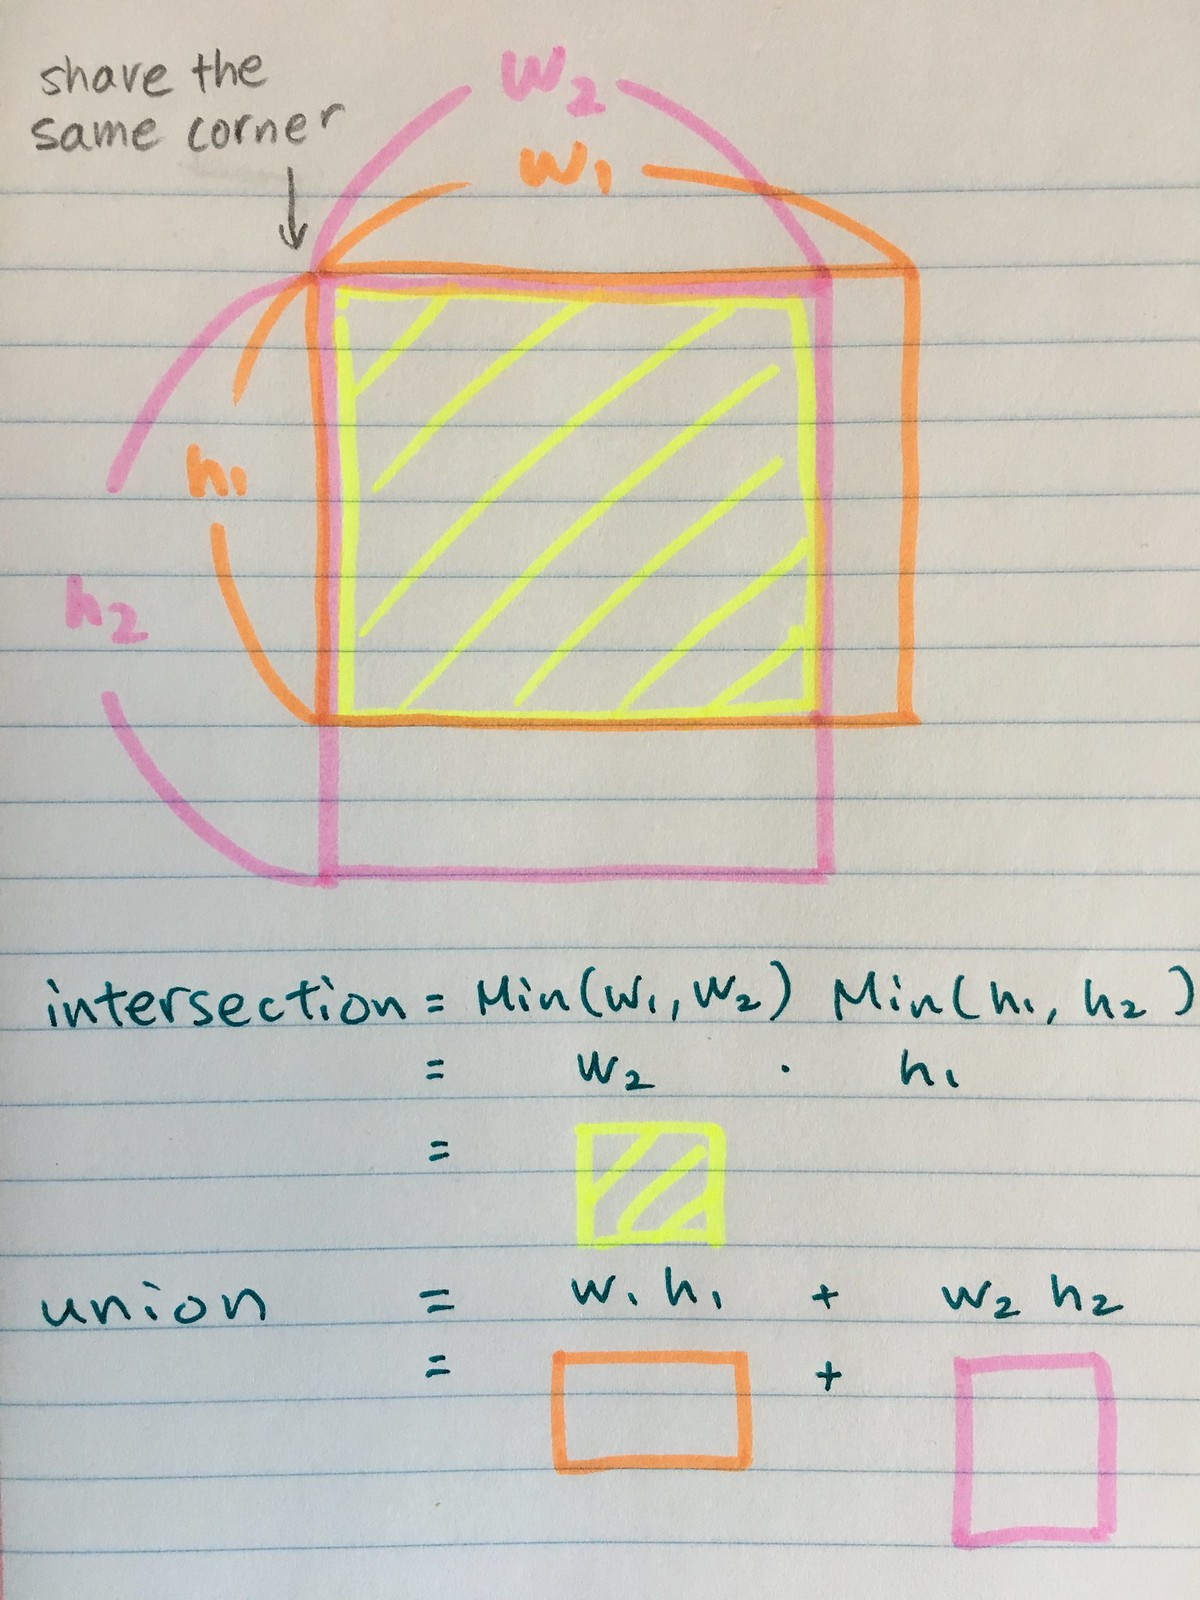 share the
same corner
W2
W1
h1
h2
intersection = Min(W1, W2) Min(h1, h2)
= W2 · h1
=
union = W1 h1 + W2 h2
= +